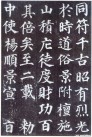 同符千古昭有烈光
於時道俗景附檀施
山積庀徒度財功百
其倍矣至二載勅
中使楊順景宣旨